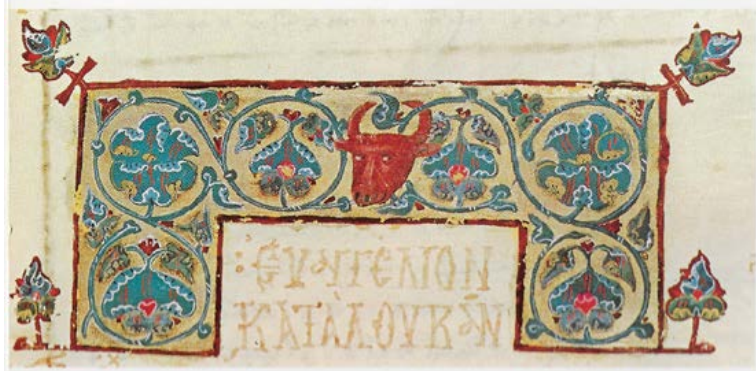 :ΕΥΑΓΓΕΛΙΟΝ
ΚΑΤᾺ ΛΟΥΚᾶΝ